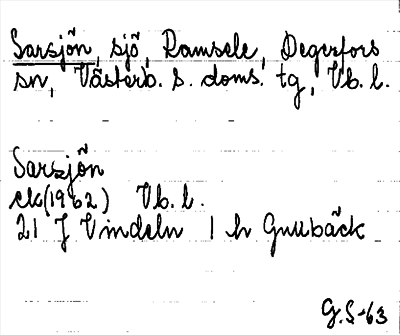 Sarsjön, sjö, Ramsele, Degerfors
sn, Västerb. s. doms. tg, Vb. l.
Sarsjön
ek(1962) Vb. l.
21 J Vindeln 1 h Gnubäck
G.S-63